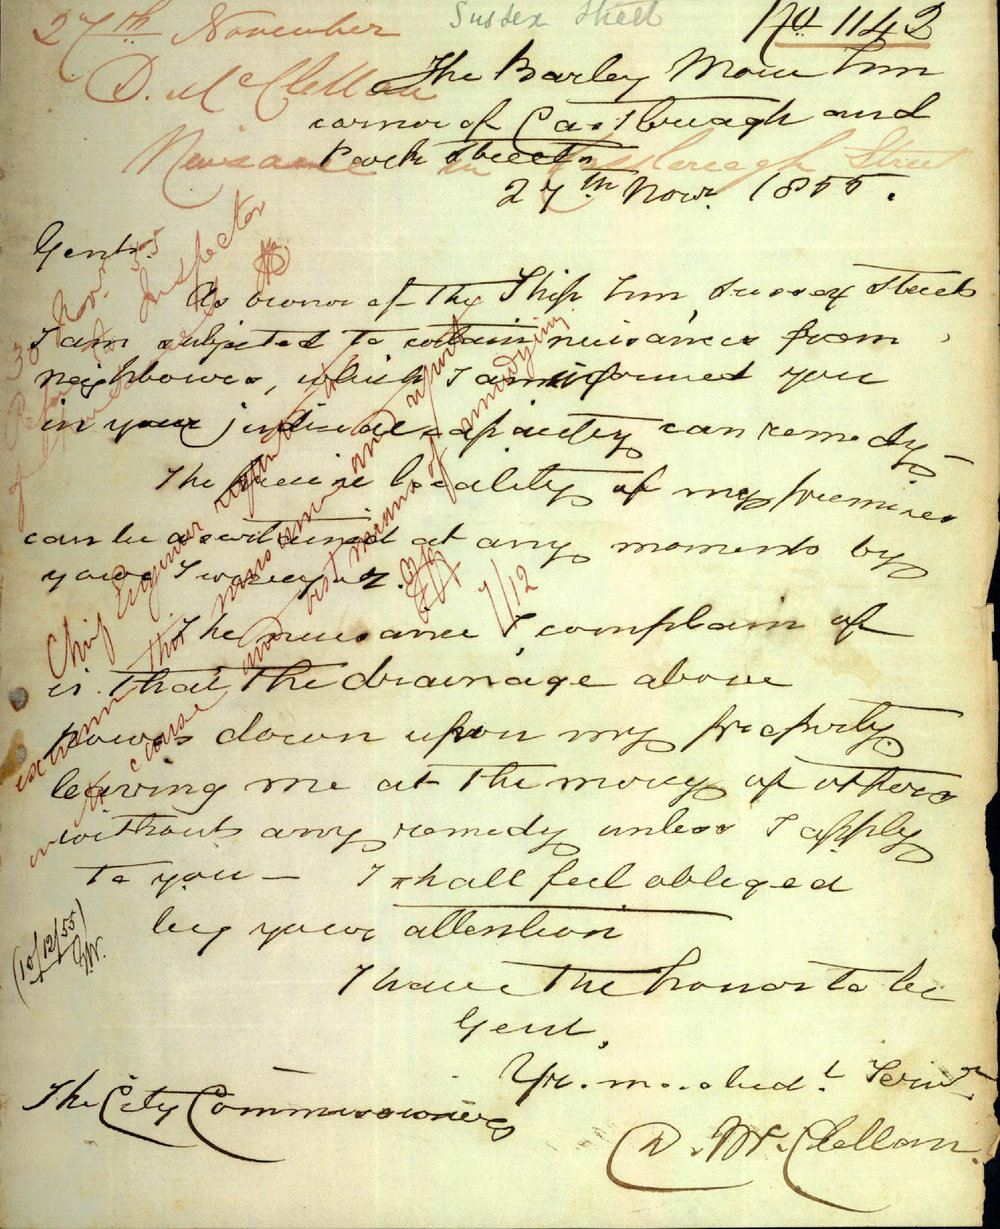 Sussex Street
No 1142
27th November
D. McClellan
Nuisance in Castlereagh Street
The Barley Mow Inn
corner of Castlereagh and
Park Streets
27th Novr. 1855.
Gents.
As owner of the Ship Inn, Sussex Street
I am subjected to certain nuisances from
neighbours, which I am informed you
in your judicial capacity can remedy.
The precise locality of my premises
can be ascertained at any moment by
your
The nuisance I complain of
is that the drainage above
pours down upon my property
leaving me at the mercy of others
without any remedy unless I apply
to you — I shall feel obliged
by your attention
I have the honor to be
Gent,
Yr. mo. obedt. Servt.
D. McClellan.
The City Commissioners
30 Novr. 55
Inspector
of
Chief Engineer
examine this nuisance and report
its cause and best means of remedying
7/12
(10/12/55)